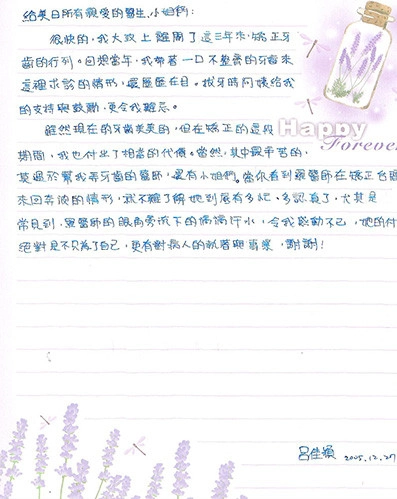 給美日所有親愛的醫生、小姐們:
很快的,我大致上離開了這三年來,矯正牙
齒的行列。回想當年,我帶著一口不整齊的牙齒來
這裡求診的情形,歷歷在目。拔牙時阿姨給我
的支持與鼓勵,更令我難忘。
雖然現在的牙齒美美的,但在矯正的這段
Happy
Forever
期間,我也付出了相當的代價。當然,其中最辛苦的,
莫過於幫我弄牙齒的醫師,還有小姐們。當你看到羅醫師在矯正台邊
來回奔波的情形,就不難了解她到底有多忙、多認真了,尤其是
常見到,羅醫師的眼角旁流下的滴滴汗水,令我感動不已,她的付
絕對是不只為了自己,更有對病人的執著與專業,謝謝!
呂佳
2005.12.27